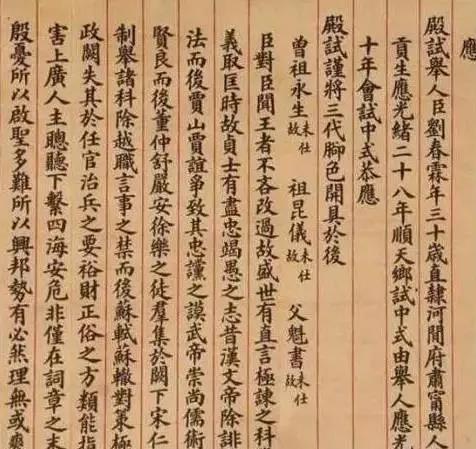 應
殿試舉人臣劉春霖年三十歲直隸河間府肅寧縣人
貢生應光緒二十八年順天鄉試中式由舉人應光
十年會試中式恭應
殿試謹將三代腳色開具於後
曾祖永生未仕故 祖昆儀未仕故 父魁書未仕故
臣對臣聞王者不吝改過故盛世有直言極諫之科
義取匡時故貞士有盡忠竭愚之志昔漢文帝除誹
法而後賈山賈誼爭致其忠讜之謨武帝崇尚儒術
賢良而後董仲舒嚴安徐樂之徒羣集於闕下宋仁
制舉諸科除越職言事之禁而後蘇軾蘇轍對策極
政闕失其於任官治兵之要裕財正俗之方類能指
害上廣人主聰聽下繫四海安危非僅在詞章之末
殷憂所以啟聖多難所以興邦勢有必然理無或爽